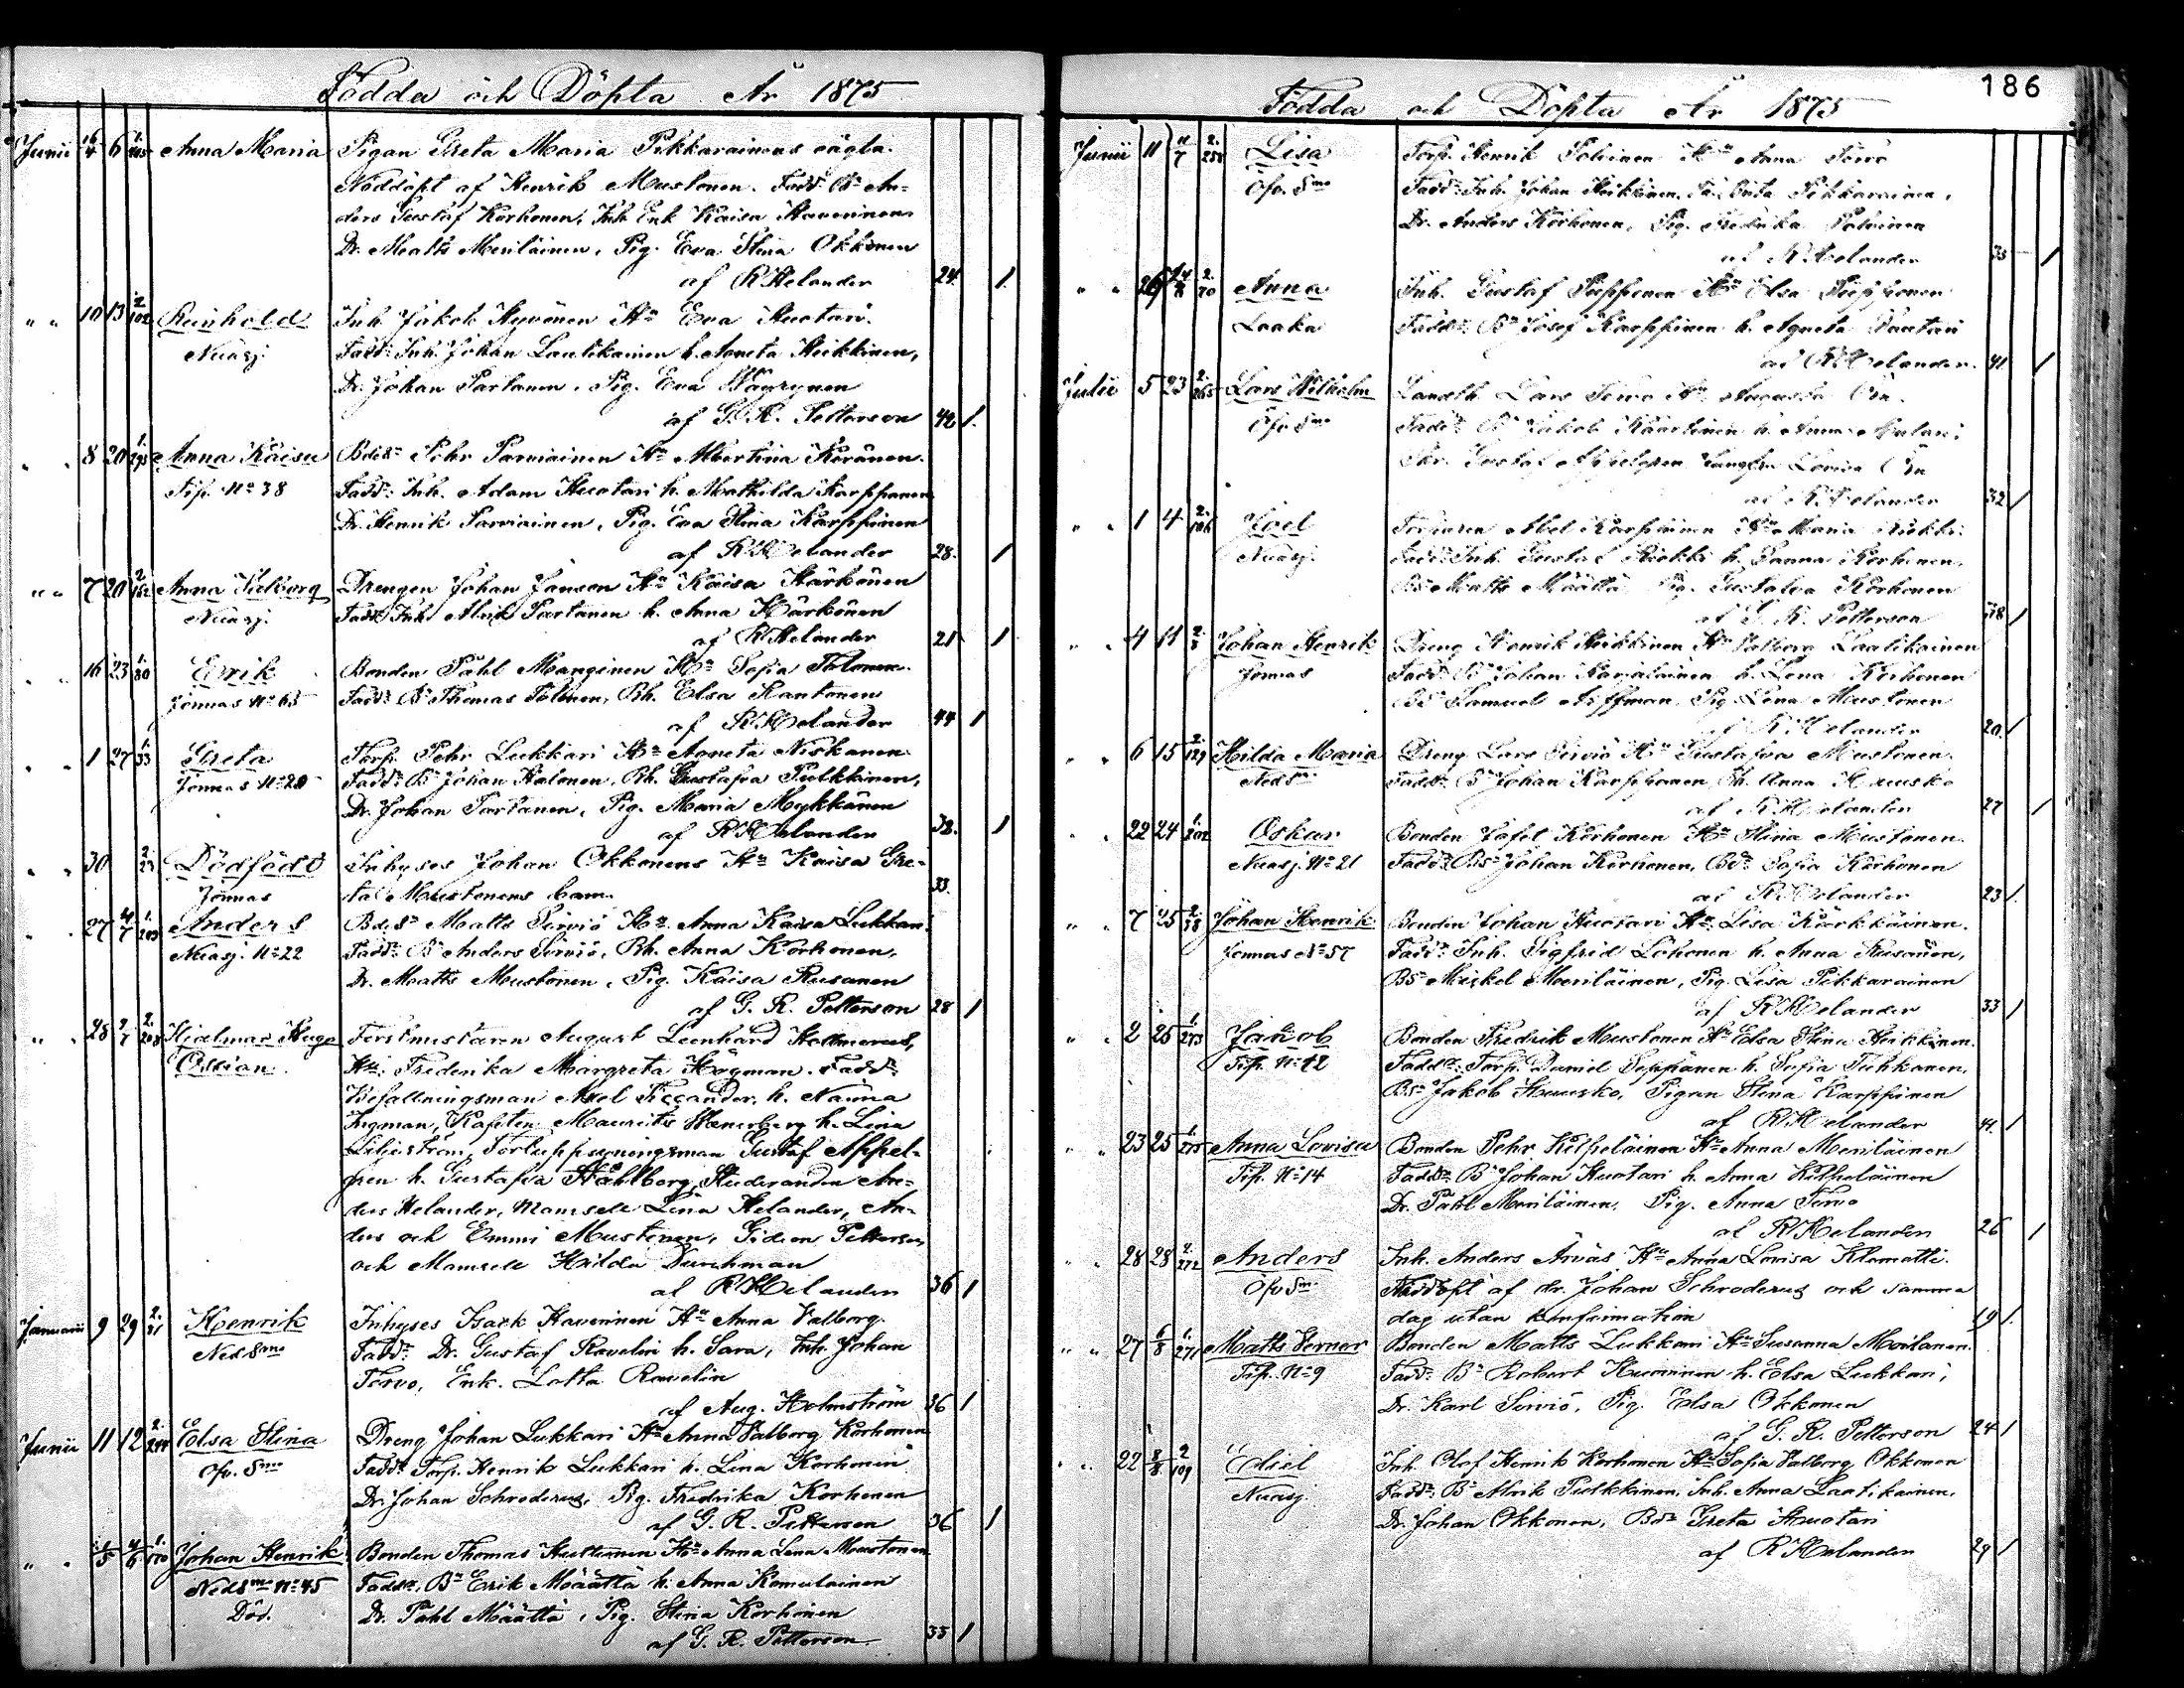 Födda och Döpta År 1875
Junii 16/4 6 Anna Maria Pigan Greta Maria Pikkarainens oägta.
Nöddöpt af Henrik Mustonen. Fadd: Bs An-
ders Gustaf Korhonen, Inh. Enk Kaisa Haverinen
Dr. Matts Meriläinen, Pig. Eva Stina Okkonen
af R Helander 24. 1.
" " 10 13 2/102 Reinhold Inh. Jakob Hyvönen Hu Eva Huotari.
Nuasj. Fadd: Inh. Johan Lautikainen h. Agneta Heikkinen,
Dr. Johan Partanen, Pig. Eva Wäyrynen
af G. R. Petterson 42 1.
" " 8 20 Anna Kaisa Bdes. Pehr Parviainen Hu Albertina Keränen.
Tip. No 38 Fadd: Inh. Adam Huotari h. Mathilda Karppanen
Dr. Henrik Parviainen, Pig. Eva Stina Karppinen
af R Helander 28. 1
" " 7 20 Anna Valborg Drengen Johan Janson Hu Kaisa Härkönen
Nuasj. Fadd: Inh. Alrik Partanen h. Anna Härkönen
af R Helander 21 1
" " 16 23 1/80 Erik Bonden Påhl Manginen Hu Sofia Tolonen.
Jormas No 65 Fadd: B Thomas Tolonen, Bh. Elsa Rantonen
af R Helander 44 1
" " 1 27 1/33 Greta Torp. Pehr Lukkari Hu Agneta Niskanen
Jormas No 20 Fadd: B Johan Halonen, Bh. Gustafva Pulkkinen,
Dr. Johan Partanen, Pig. Maria Mykkänen
af R Helander 32. 1
" " 30 2/23 Dödfödd Inhyses Johan Okkonens Hu Kaisa Gre-
Jormas ta Mustonens barn. 33.
" " 27 4/7 1/203 Anders Bdes. Matts Sirviö Hu Anna Kaisa Lukkari
Nuasj. No 22 Fadd: B Anders Sirviö, Bh. Anna Korhonen,
Dr. Matts Mustonen, Pig. Kaisa Rusanen
af G. R. Petterson 28 1
" " 28 2/208 Hjalmar Hugo Forstmästaren August Leonhard
Ossian. Hu: Fredrika Margreta Högman. Fadd:
Befallningsman Axel Ticcander, h. Nanna
Ingman, Kapten Maurits h. Lina
Liljeström, Gustaf Appel-
gren h. Gustafva Ståhlberg, Studeranden An-
ders Helander, Mamsell Lina Helander, An-
ders och Emmi Mustonen, Gideon Petterson,
och Mamsell Hilda Durchman
af R Helander 36 1
Januarii 9 29 2/31 Henrik Inhyses Isack Haverinen Hu Anna Valborg.
Ned Smo Fadd: Dr. Gustaf Ravelin h. Sara, Inh. Johan
Tervo, Enk. Lotta Ravelin
af Aug. Holmström 36 1
Junii 11 12 2/244 Elsa Stina Dreng Johan Lukkari Hu Anna Valborg Korhonen
Öfv. Smo Fadd: Torp. Henrik Lukkari h. Lina Korhonen
Dr. Johan Schroderus, Pig. Fredrika Korhonen
af G. R. Petterson 36 1
" " Johan Henrik Bonden Thomas Hu Anna Lena Mustonen
Ned Smo No 45 Fadd: B Erik Määttä h. Anna Komulainen
Död. Dr. Påhl Määttä, Pig. Stina Korhonen
af G. R. Petterson 35 1
186
Födda och Döpta År 1875
Junii 11 11/7 2/258 Lisa Torp. Henrik Polvinen Hu Anna Tervo
Öfv. Smo Fadd: Inh. Johan Heikkinen, Brita Pikkarainen,
Dr. Anders Korhonen, Pig. Fredrika Polvinen
af R Helander 35 1
" " 26 2/70 Anna Inh. Gustaf Piipponen Hu Elsa Piipponen
Laaka Fadd: B Josef Karppinen h. Agneta Huotari
af R Helander. 41 1
Julii 5 23 2/265 Lars Wilhelm Landth. Lars Tervo Hu Augusta
Öfv Smo Fadd: B Jakob Kaartinen h. Anna
Gustaf Appelgren Lovisa
af R Helander 32 1
" " 1 4 2/106 Joel Torparen Abel Karppinen Hu Maria Riekki.
Nuasj. Fadd: Inh. Gustaf Riekki h. Sanna Korhonen,
Bs Matts Määttä, Pig. Gustafva Korhonen
af G. R. Petterson 38 1
" " 4 11 Johan Henrik Dreng Henrik Heikkinen Hu Valborg Laatikainen
Jormas Fadd: B Johan Karjalainen h. Lena Korhonen
Bs Samuel Pig. Lena Mustonen
af R Helander 20. 1
" " 6 15 2/129 Hilda Maria Dreng Lars Sirviö Hu Gustafva Mustonen.
Ned Smo Fadd: B Johan Karppanen Bh. Anna Hausko
af R Helander 27 1
" " 22 24 1/202 Oskar Bonden Jafet Korhonen Hu Stina Mustonen.
Nuasj. No 21 Fadd: Bs Johan Korhonen, Bdr Sofia Korhonen
af R Helander 23 1.
" " 7 25 Johan Henrik Bonden Johan Huotari Hu Lisa Kärkkäinen.
Jormas No 57 Fadd: Inh. Sigfrid Löhönen h. Anna Rusanen,
Bs Mickel Meriläinen, Pig. Lisa Pikkarainen
af R Helander 33 1
" " 2 25 1/273 Jakob Bonden Fredrik Mustonen Hu Elsa Stina Heikkinen.
Tip. No 12 Fadd: Torp. Daniel Seppänen h. Sofia Tuhkanen,
Bs Jakob Hausko, Pigan Stina Karppinen
af R Helander 41. 1
" " 23 25 1/275 Anna Lovisa Bonden Pehr Kilpeläinen Hu Anna Meriläinen
Tip. No 14 Fadd: B Johan Huotari h. Anna Kilpeläinen
Dr. Påhl Meriläinen, Pig. Anna Tervo
af R Helander 26 1
" " 28 28 2/272 Anders Inh. Anders Arväs Hu Anna Lovisa Klemetti.
Öfv Smo Nöddöpt af dr. Johan Schroderus och samma
dag utan konfirmation 19 1.
" " 27 6/8 1/271 Matts Verner Bonden Matts Lukkari Hu Susanna Moilanen.
Tip. No 9 Fadd: B Robert Huovinen h. Elsa Lukkari,
Dr. Karl Sirviö, Pig. Elsa Okkonen
af G. R. Petterson 24 1
" " 22 8/8 2/109 Ediel Inh. Olof Henrik Korhonen Hu Sofia Valborg Okkonen
Nuasj. Fadd: B Alrik Pulkkinen, Inh. Anna Laatikainen,
Dr. Johan Okkonen, Bdr Greta Huotari
af R Helander 29 1